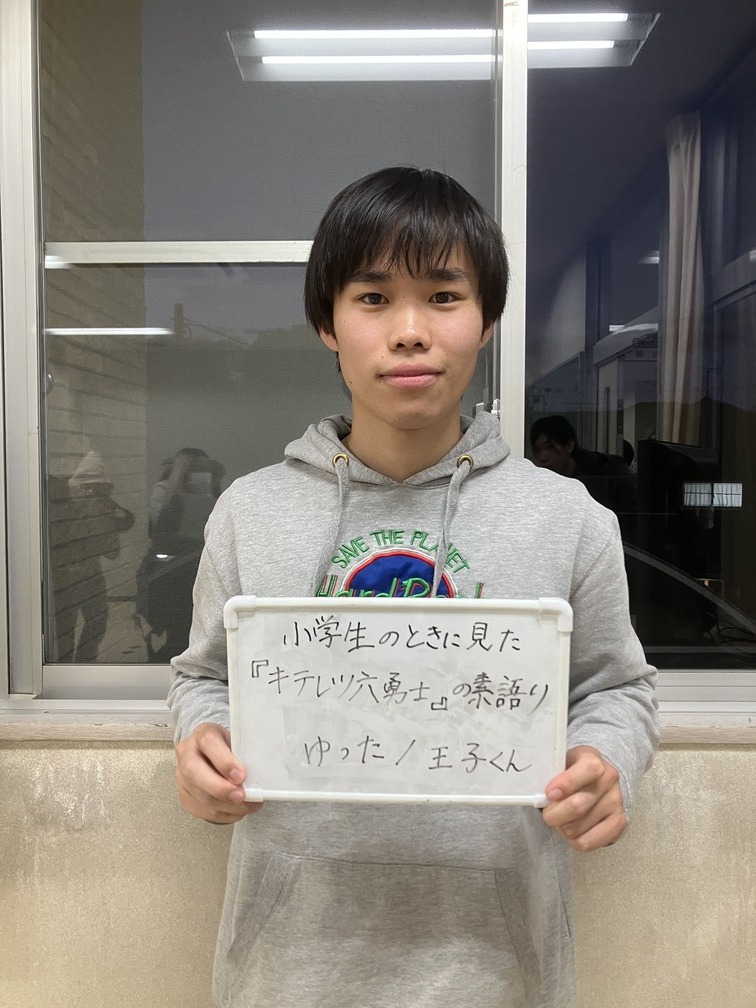 SAVE THE PLANET
Hard Rock
小学生のときに見た
『キテレツ六勇士』の素語り
ゆった/王子くん